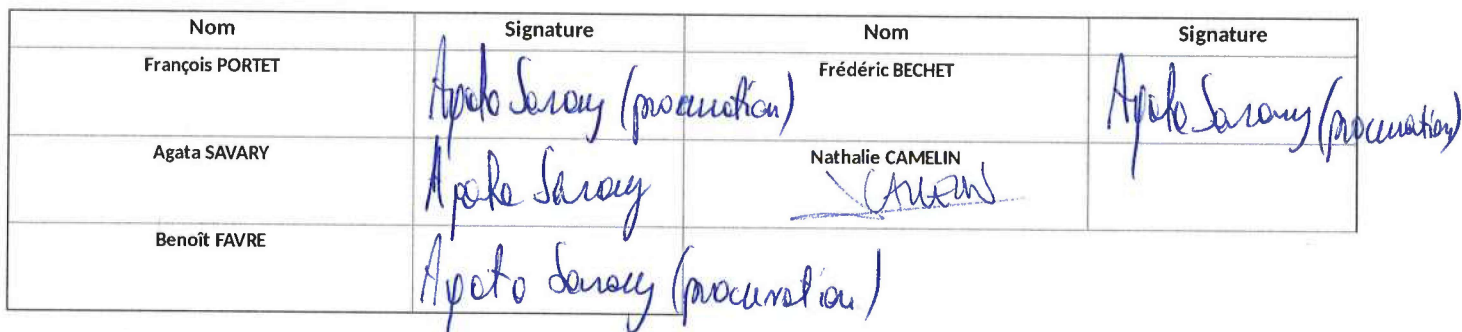 Nom Signature Nom Signature
François PORTET Agata Savary (procuration) Frédéric BECHET Agata Savary (procuration)
Agata SAVARY Agata Savary Nathalie CAMELIN CAMELIN
Benoît FAVRE Agata Savary (procuration)